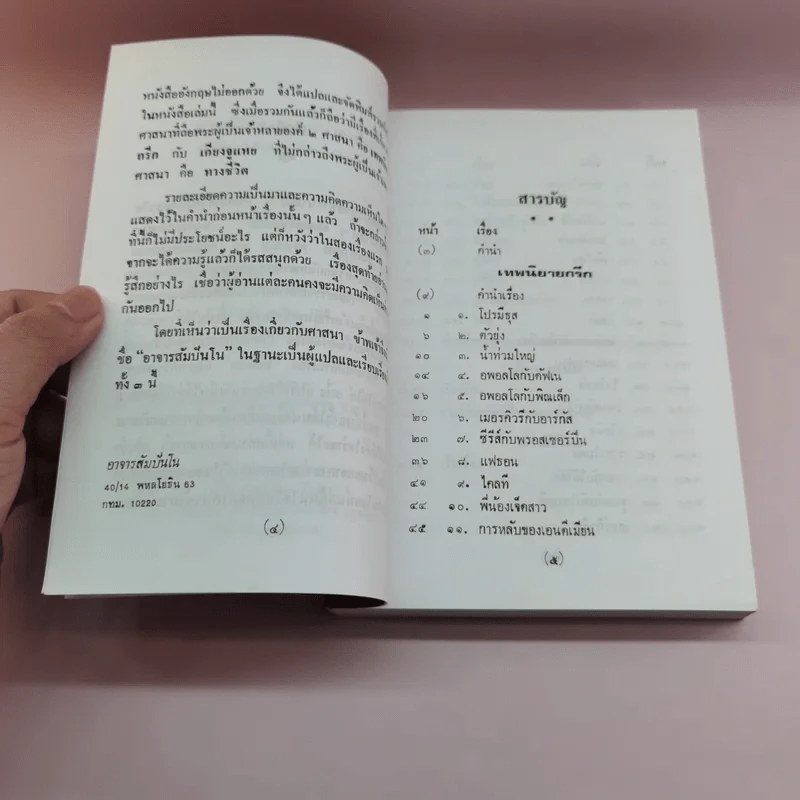 หนังสืออังกฤษไม่ออกด้วย จึงได้แปลและจัดพิมพ์
ในหนังสือเล่มนี้ ซึ่งเมื่อรวมกันแล้วก็ถือว่ามีเรื่อง
ศาสนาที่ถือพระผู้เป็นเจ้าหลายองค์ ๒ ศาสนา คือ
กรีก กับ เกียงจูแหย ที่ไม่กล่าวถึงพระผู้เป็นเจ้า
ศาสนา คือ ทางชีวิต
รายละเอียดความเป็นมาและความคิดความเห็นใด
แสดงไว้ในคำนำก่อนหน้าเรื่องนั้นๆ แล้ว ถ้าจะกล่าว
ที่นี้ก็ไม่มีประโยชน์อะไร แต่ก็หวังว่าในสองเรื่องแรก
จากจะได้ความรู้แล้วก็ได้รสสนุกด้วย เรื่องสุดท้าย
รู้สึกอย่างไร เชื่อว่าผู้อ่านแต่ละคนคงจะมีความคิดเห็น
กันออกไป
โดยที่เห็นว่าเป็นเรื่องเกี่ยวกับศาสนา ข้าพเจ้า
ชื่อ “อาจารสัมปันโน” ในฐานะเป็นผู้แปลและเรียบเรียง
ทั้ง ๓ นี้
อาจารสัมปันโน
40/14 พหลโยธิน 63
กทม. 10220
(๔)
สารบัญ
หน้า เรื่อง
(๓) คำนำ
เทพนิยายกรีก
(๙) คำนำเรื่อง
๑ ๑. โปรมีธุส
๖ ๒. ตัวยุ่ง
๑๐ ๓. น้ำท่วมใหญ่
๑๔ ๔. อพอลโลกับดัฟเน
๑๖ ๕. อพอลโลกับพิณเล็ก
๒๐ ๖. เมอรคิวรีกับอาร์กัส
๒๓ ๗. ซีรีส์กับพรอสเซอร์ปิน
๓๖ ๘. แฟธอน
๔๑ ๙. ไคลที
๔๔ ๑๐. พี่น้องเจ็ดสาว
๔๕ ๑๑. การหลับของเอนดีเมียน
(๕)